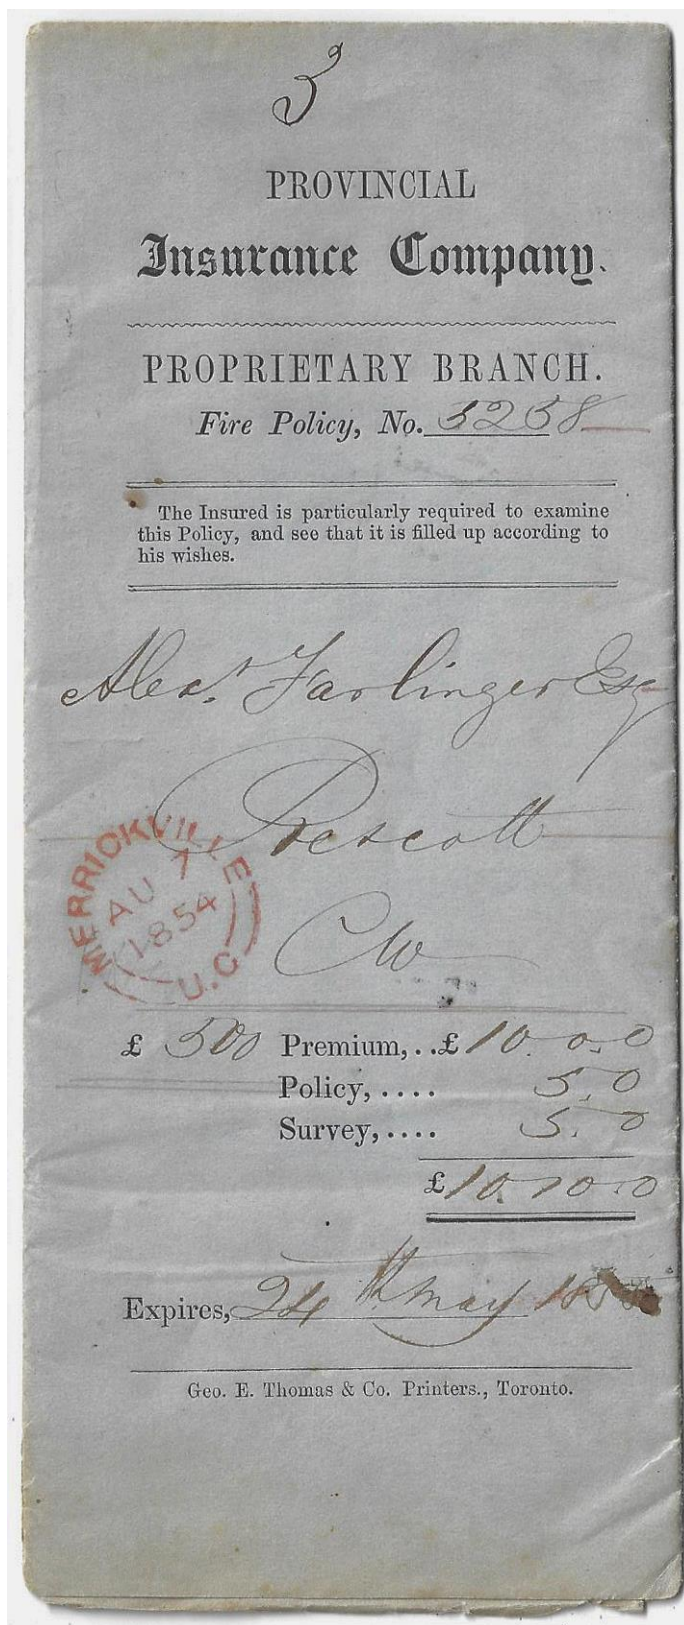 3
PROVINCIAL
Insurance Company.
PROPRIETARY BRANCH.
Fire Policy, No. 3258
The Insured is particularly required to examine
this Policy, and see that it is filled up according to
his wishes.
Alexr. Farlinger Esq
Prescott
CW
MERRICKVILLE
AU 7
1854
U.C
£ 500 Premium,..£10.0.0
Policy,.... 5.0
Survey,.... 5.0
£10.10.0
Expires, 24th May
Geo. E. Thomas & Co. Printers., Toronto.